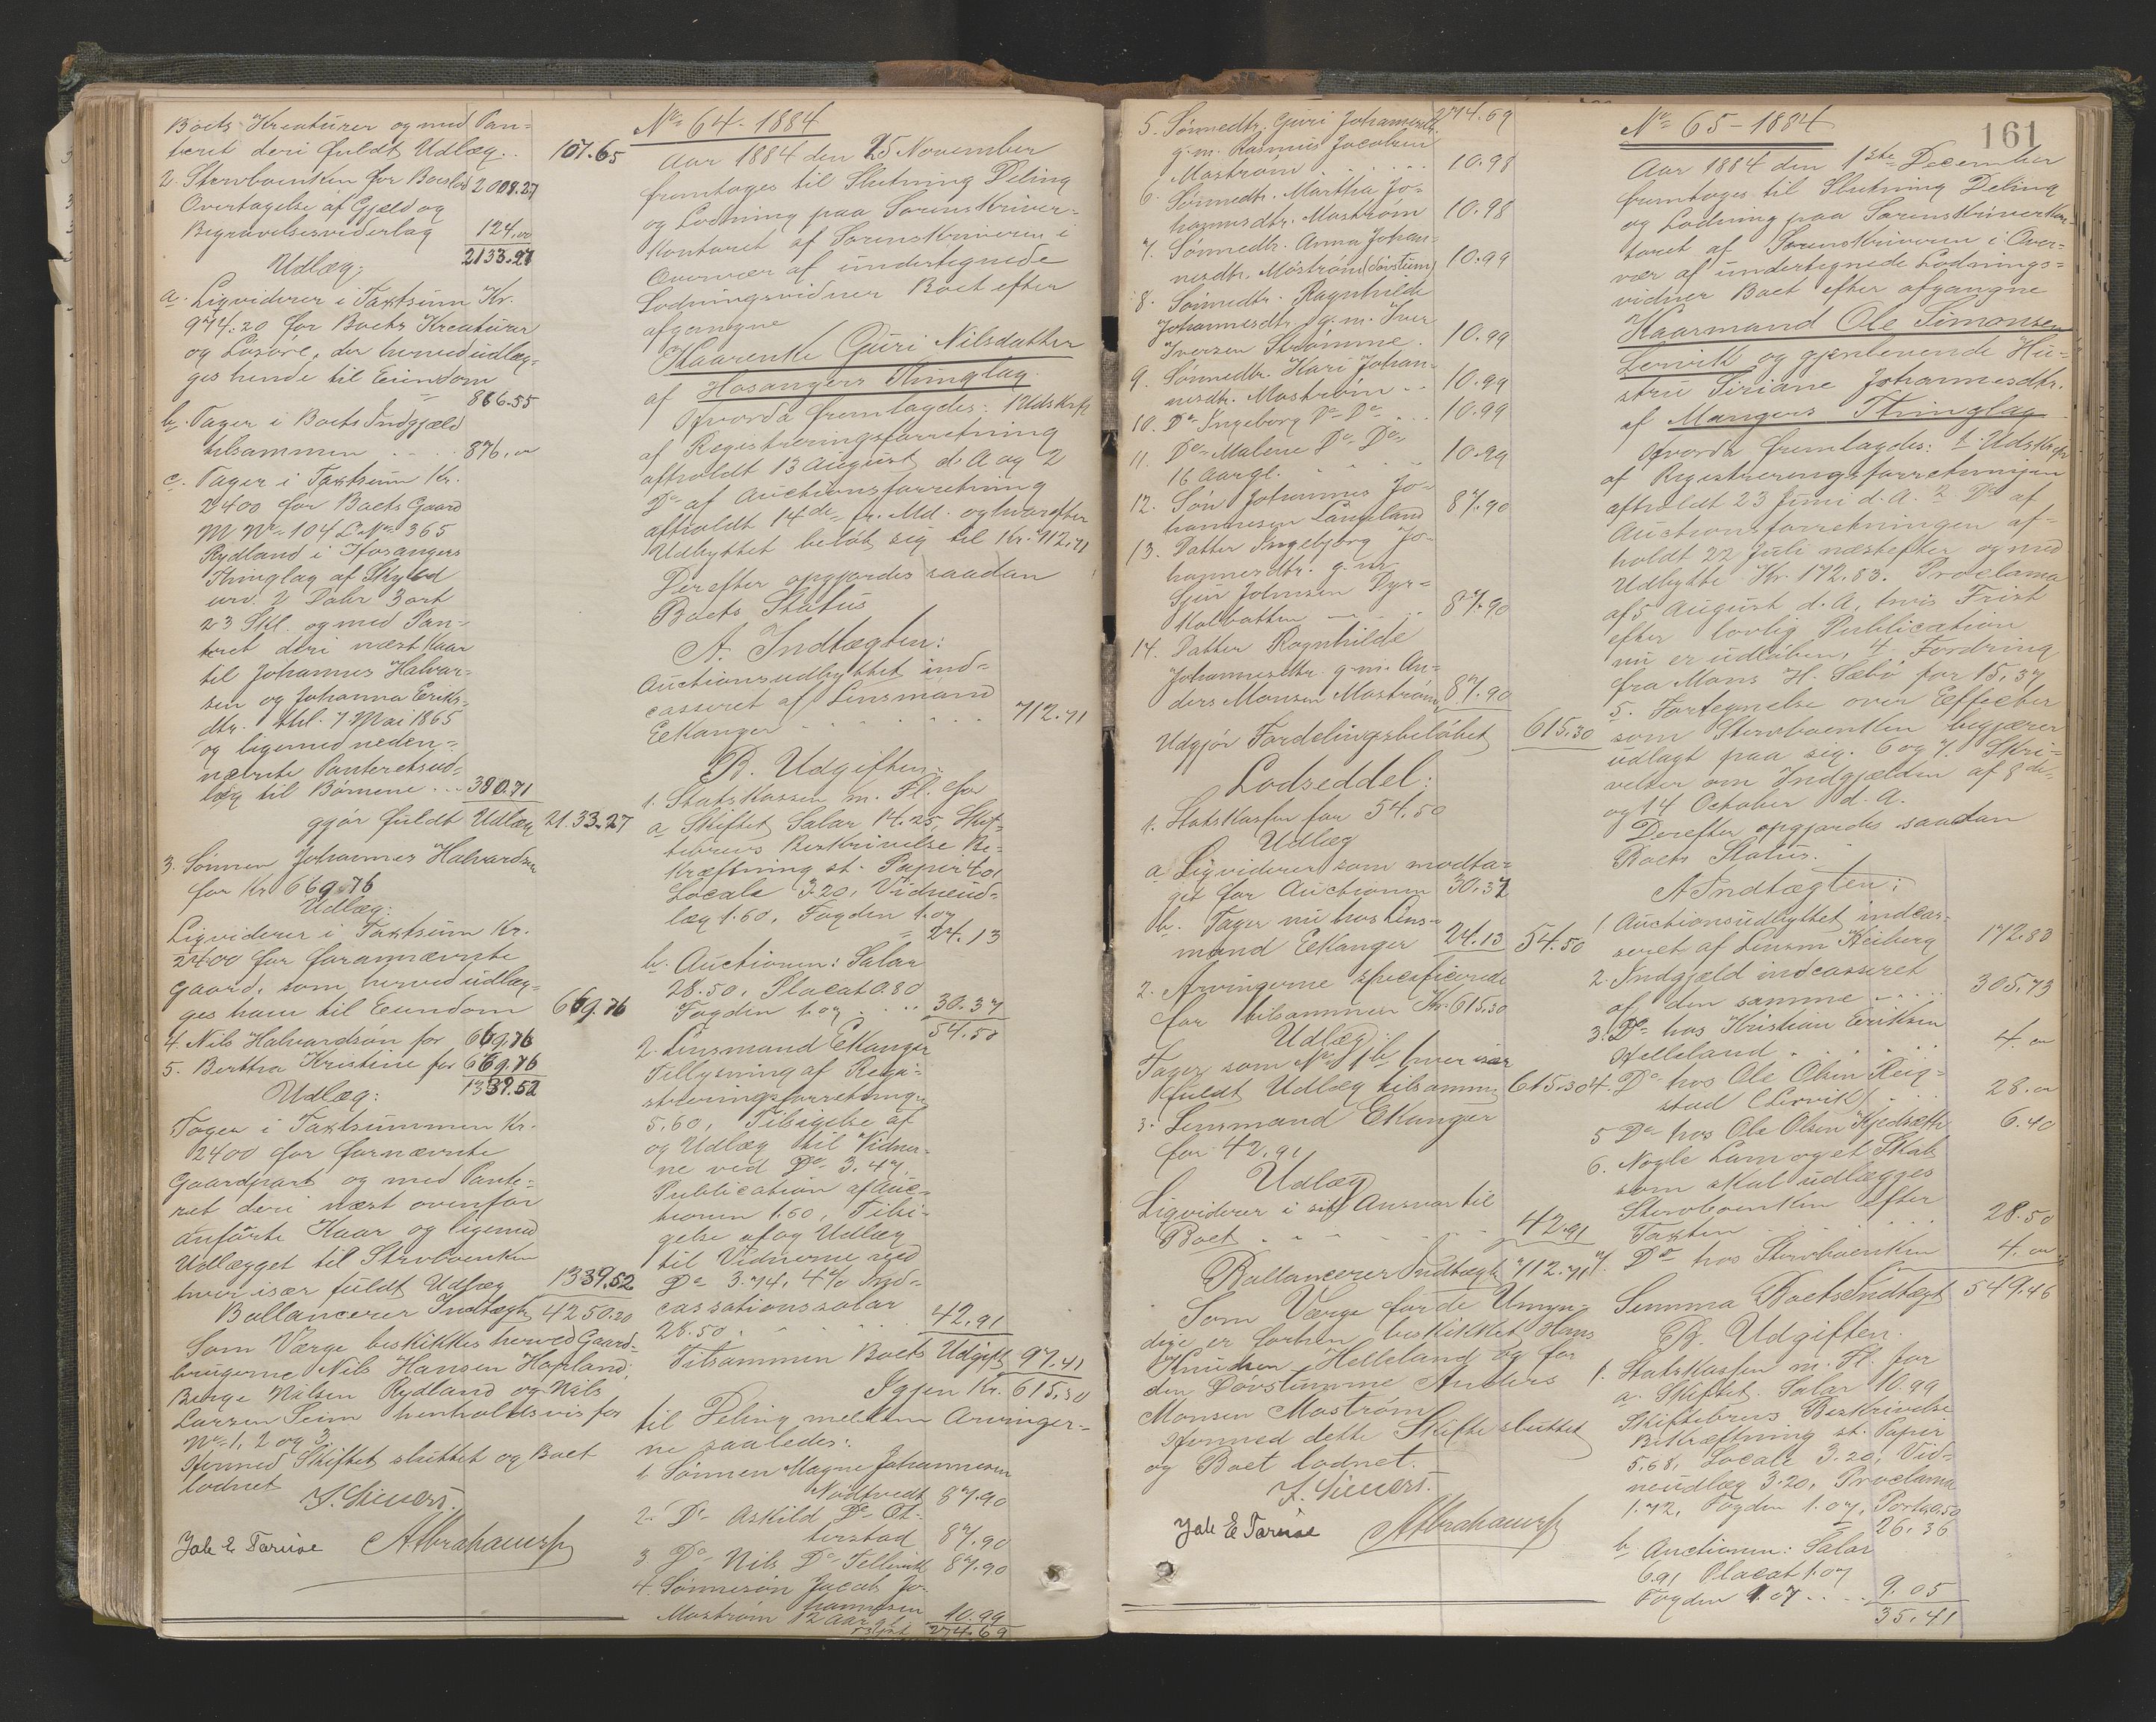 Boets Kreaturer og med Pan-
teret deri fuldt Udlæg . . 107.65
2. Stervboenken for Boeslod 2009.27
Overtagelse af Gjæld og
Begravelsesvederlag 124,00
2133.27
Udlæg:
a. Liqviderer i Taxtsum Kr.
974.20 for Boets Kreaturer
og Løsøre, der herved udlæg-
ges hende til Eiendom
866.55
b. Tager i Boets Indgjæld
tilsammen . . . . 876,00
c. Tager i Taxtsum Kr.
2400 for Boets Gaard
M No 104 L No 365
Rydland i Hosangers
Thinglag af Skyld
urv. 2 Daler 3 ort
23 Skl. og med Pan-
teret deri næst Kaar
til Johannes Halvar-
sen og Johanna Eriks-
dtr. thl. 7 Mai 1865
og ligemed neden-
nævnte Panteretsud-
læg til Børnene . . . 390.71
gjør fuldt Udlæg 2133.27
3. Sønnen Johannes Halvardsen
for Kr 669.76
Udlæg:
Liqviderer i Taxtsum Kr.
2400 for forannævnte
Gaard, som herved udlæg-
ges ham til Eiendom 669.76
4. Nils Halvardsøn for 669.76
5. Berttha Kristine for 669.76
1339.52
Udlæg:
Tager i Taxtsummen Kr.
2400 for fornævnte
Gaardpart og med Pante-
ret deri næst ovenfor
anførte Kaar og ligemed
Udlægget til Stervboenken
hver især fuldt Udlæg 1339.52
Ballancerer Indtægt 4250.20
Som Værge beskikkes herved Gaard-
brugerne Nils Hansen Hopland,
Berge Nilsen Rydland og Nils
Larsen Seim henholdsvis for
No 1, 2 og 3
Hermed Skiftet sluttet og Boet
lodnet
F. Sievers.
Jak E Taruse Abrahamsen
No 64 - 1884
Aar 1884 den 25 November
fremtoges til Slutning Deling
og Lodning paa Sorenskriver-
kontoret af Sorenskriveren i
Overvær af undertegnede
Lodningsvidner Boet efter
afgangne
Kaarenke Guri Nilsdatter
af Hosangers Thinglag.
Hvorda fremlagdes: 1 Udskrft
af Registreringsforretning
aftholdt 13 August d. A og 2
Do af Auctionsforretning
aftholdt 14de n. Md. oghvorefter
Udbyttet beløb sig til Kr. 712.71
Derefter opgjordes saadan
Boets Status
A. Indtægten:
Auctionsudbyttet ind-
casseret af Lensmand
Eekanger . . . . . . 712.71
B. Udgiften:
1. Statskassen m. Fl. for
a Skiftet Salar 14.25, Skif-
tebrevs Beskrivelse Be-
kræftning st. Papir 4.01
Locale 3.20, Vidneud-
læg 1.60, Fogden 1.07
24.13
b. Auctionen: Salar
28.50, Placat 0.80
Fogden 1.07 . . . 30.37
54.50
2. Lensmand Ekanger
Tillysning af Regi-
streringsforretningen
5.60, Tilsigelse af
og Udlæg til Vidner-
ne ved Do 3.47,
Publication af Auc-
tionen 1.60, Tilsi-
gelse af og Udlæg
til Vidnerne ved
Do 3.74, 4% Ind-
cassationssalar
28.50 . . . . . 42.91
Tilsammen Boets Udgift 97.41
Igjen Kr. 615.30
til Deling mellem Arvinger-
ne saaledes:
1. Sønnen Magne Johannesen
Nødtvedt 87.90
2. Do Askild Do Ot-
terstad 87.90
3. Do Nils Do Tellevik 87.90
4. Sønnesøn Jacob Jo-
hannesen
Mostrøm 12 Aar gl. 10.99
274.69
5. Sønnedtr. Guri Johannesdtr. 274.69
g. m. Rasmus Jacobsen
Mostrøm . . . . . 10.98
6. Sønnedtr. Martha Jo-
hannesdtr. Mostrøm 10.98
7. Sønnedtr. Anna Johan-
nesdtr. Mostrøm (døvstum) 10.99
8. Sønnedtr. Ragnhilde
Johannesdtr. g. m. Iver
Iversen Strømme . 10.99
9. Sønnedtr. Kari Johan-
nesdtr. Mostrøm . . 10.99
10. Do Ingeborg Do Do . . 10.99
11. Do Malene Do Do
16 Aar gl. . . . . 10.99
12. Søn Johannes Jo-
hannesen Langeland 87.90
13. Datter Ingebjørg Jo-
hannesdtr. g. m.
Sjur Johnsen Dyr-
kolbotten . . . 87.90
14. Datter Ragnhilde
Johannesdtr. g. m. An-
ders Monsen Mostrøm 87.90
Udgjør Fordelingsbeløbet 615.30
Lodseddel:
1. Statskassen for 54.50
Udlæg
a Liqviderer som modta-
get for Auctionen 30.37
b. Tager nu hos Lens-
mand Eekanger 24.13 54.50
2. Arvingerne specificerede
for tilsammen Kr. 615.30
Udlæg
Tager som No 1 b hver især
fuldt Udlæg tilsammen 615.30
3. Lensmand Ekanger
for 42.91
Udlæg
Liqviderer i sit Ansvar til
Boet . . . . . . 42.91
Ballancerer Indtægt 712.71
Som Værge for de Umyn-
dige er forhen beskikket Hans
Knudsen Helleland og for
den Døvstumme Anders
Monsen Mostrøm
Hermed dette Skifte sluttet
og Boet lodnet.
F. Sievers.
Jak E Taruse Abrahamsen
161
No 65 - 1884
Aar 1884 den 1ste December
fremtoges til Slutning Deling
og Lodning paa Sorenskriverkon-
toret af Sorenskriveren i Over-
vær af undertegnede Lodnings-
vidner Boet efter afgangne
Kaarmand Ole Simonsen
Lervik og gjenlevende Hu-
stru Siriane Johannesdtr.
af Mangers Thinglag
Hvorda fremlagdes: 1 Udskrft
af Registreringsforretningen
aftholdt 23 Juni d. A. 2 Do af
Auctionsforretningen af-
holdt 22 Juli næstefter og med
Udbytte Kr. 172.83. Proclama
af 5 August d. A., hvis Frist
efter lovlig Publication
nu er udløben, 4. Fordring
fra Mons H. Sæbø for 15,37
5. Fortegnelse over Effecter
som Stervboenken begjærer
udlagt paa sig. 6 og 7. Skri-
velser om Indgjælden af 8de
og 14 October d. A.
Derefter opgjordes saadan
Boets Status.
A Indtægten:
1 Auctionsudbyttet indcas-
seret af Lensm Heiberg 172.83
2. Indgjæld indcasseret
af den samme . . . 305.73
3. Do hos Kristian Eriksen
Helleland . . . . . 4.00
4. Do hos Ole Olsen Reig-
stad (Lervik) . . . 28.00
5 Do hos Ole Olsen Kjedsætte 6.40
6. Nogle Lam og et Skab
som skal udlægges
Stervboenken efter
Taxten . . . . . 28.50
7. Do hos Stervboenken 4.00
Summa Boets Indtægt 549.46
B. Udgiften.
1. Statskassen m. Fl. for
a. Skiftet. Salar 10.99
Skiftebrevs Beskrivelse
Bekræftning st. Papir
5.68, Locale 3.20, Vid-
neudlæg 3.20, Proclama
1.72, Fogden 1.07, Porto 0.50
26.36
b Auctionen: Salar
6.91 Placat 1.07
Fogden 1.07 . . . 9.05
35.41